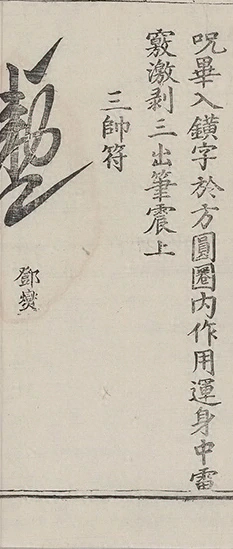 呪畢入鐄字於方圓圈內作用運身中雷
竅激剥三出筆震上
三帥符
鄧燮